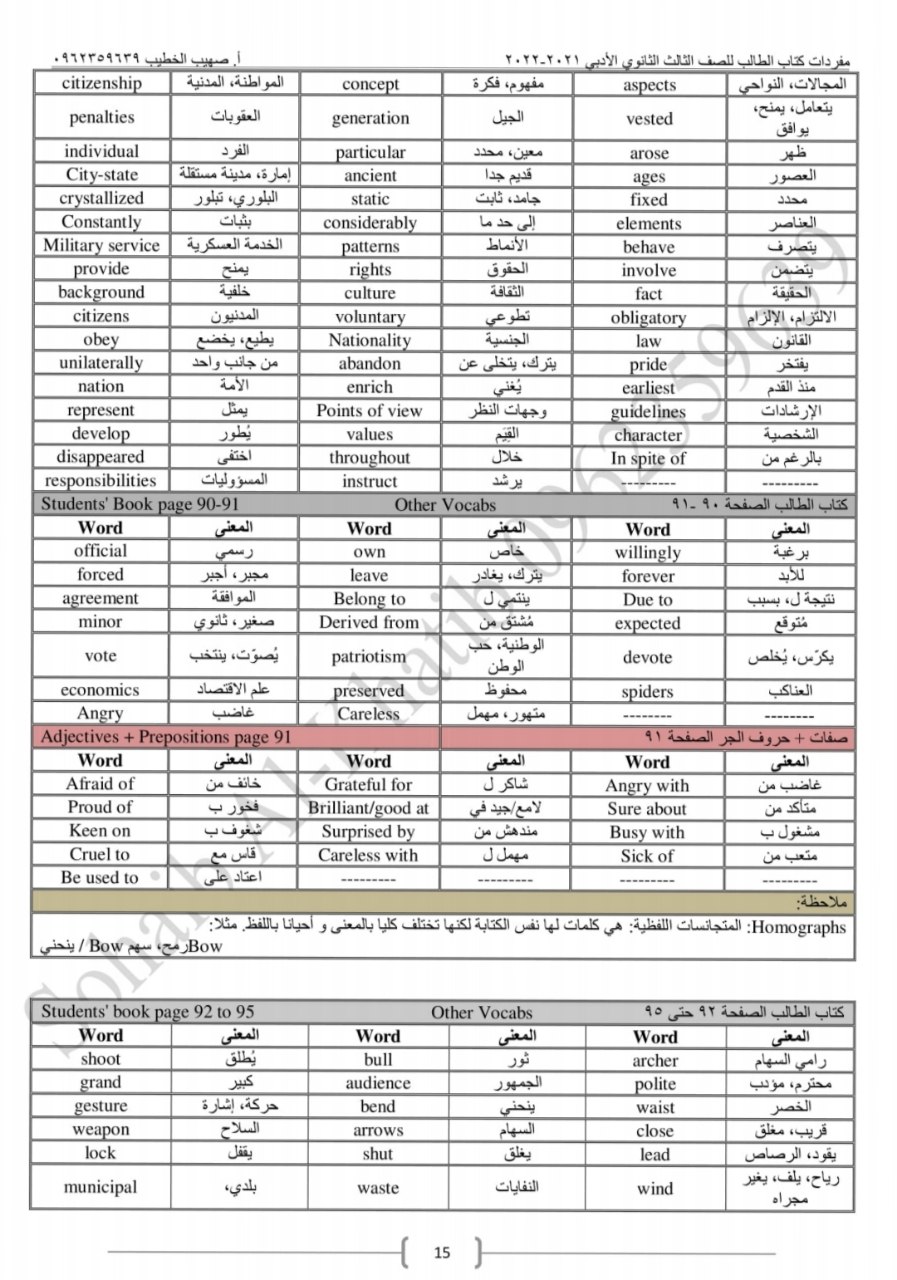 مفردات كتاب الطالب للصف الثالث الثانوي الأدبي ٢٠٢١-٢٠٢٢ أ. صهيب الخطيب ٠٩٦٢٣٥٩٦٣٩
citizenship المواطنة، المدنية concept مفهوم، فكرة aspects المجالات، النواحي
penalties العقوبات generation الجيل vested يتعامل، يمنح، يوافق
individual الفرد particular معين، محدد arose ظهر
City-state إمارة، مدينة مستقلة ancient قديم جدا ages العصور
crystallized البلوري، تبلور static جامد، ثابت fixed محدد
Constantly بثبات considerably إلى حد ما elements العناصر
Military service الخدمة العسكرية patterns الأنماط behave يتصرف
provide يمنح rights الحقوق involve يتضمن
background خلفية culture الثقافة fact الحقيقة
citizens المدنيون voluntary تطوعي obligatory الالتزام، الإلزام
obey يطيع، يخضع Nationality الجنسية law القانون
unilaterally من جانب واحد abandon يترك، يتخلى عن pride يفتخر
nation الأمة enrich يُغني earliest منذ القدم
represent يمثل Points of view وجهات النظر guidelines الإرشادات
develop يُطور values القِيَم character الشخصية
disappeared اختفى throughout خلال In spite of بالرغم من
responsibilities المسؤوليات instruct يرشد --------- ---------
Students' Book page 90-91 Other Vocabs كتاب الطالب الصفحة ٩٠ -٩١
Word المعنى Word المعنى Word المعنى
official رسمي own خاص willingly برغبة
forced مجبر، أجبر leave يترك، يغادر forever للأبد
agreement الموافقة Belong to ينتمي ل Due to نتيجة ل، بسبب
minor صغير، ثانوي Derived from مُشتق من expected مُتوقع
vote يُصوّت، ينتخب patriotism الوطنية، حب الوطن devote يكرّس، يُخلص
economics علم الاقتصاد preserved محفوظ spiders العناكب
Angry غاضب Careless متهور، مهمل -------- --------
Adjectives + Prepositions page 91 صفات + حروف الجر الصفحة ٩١
Word المعنى Word المعنى Word المعنى
Afraid of خائف من Grateful for شاكر ل Angry with غاضب من
Proud of فخور ب Brilliant/good at لامع/جيد في Sure about متأكد من
Keen on شغوف ب Surprised by مندهش من Busy with مشغول ب
Cruel to قاس مع Careless with مهمل ل Sick of متعب من
Be used to اعتاد على --------- --------- --------- ---------
ملاحظة:
Homographs: المتجانسات اللفظية: هي كلمات لها نفس الكتابة لكنها تختلف كليا بالمعنى و أحيانا باللفظ. مثلا:
Bow رمح، سهم Bow / ينحني
Students' book page 92 to 95 Other Vocabs كتاب الطالب الصفحة ٩٢ حتى ٩٥
Word المعنى Word المعنى Word المعنى
shoot يُطلق bull ثور archer رامي السهام
grand كبير audience الجمهور polite محترم، مؤدب
gesture حركة، إشارة bend ينحني waist الخصر
weapon السلاح arrows السهام close قريب، مغلق
lock يقفل shut يغلق lead يقود، الرصاص
municipal بلدي، waste النفايات wind رياح، يلف، يغير مجراه
15
Sohaib Al-Khatib 0962359639